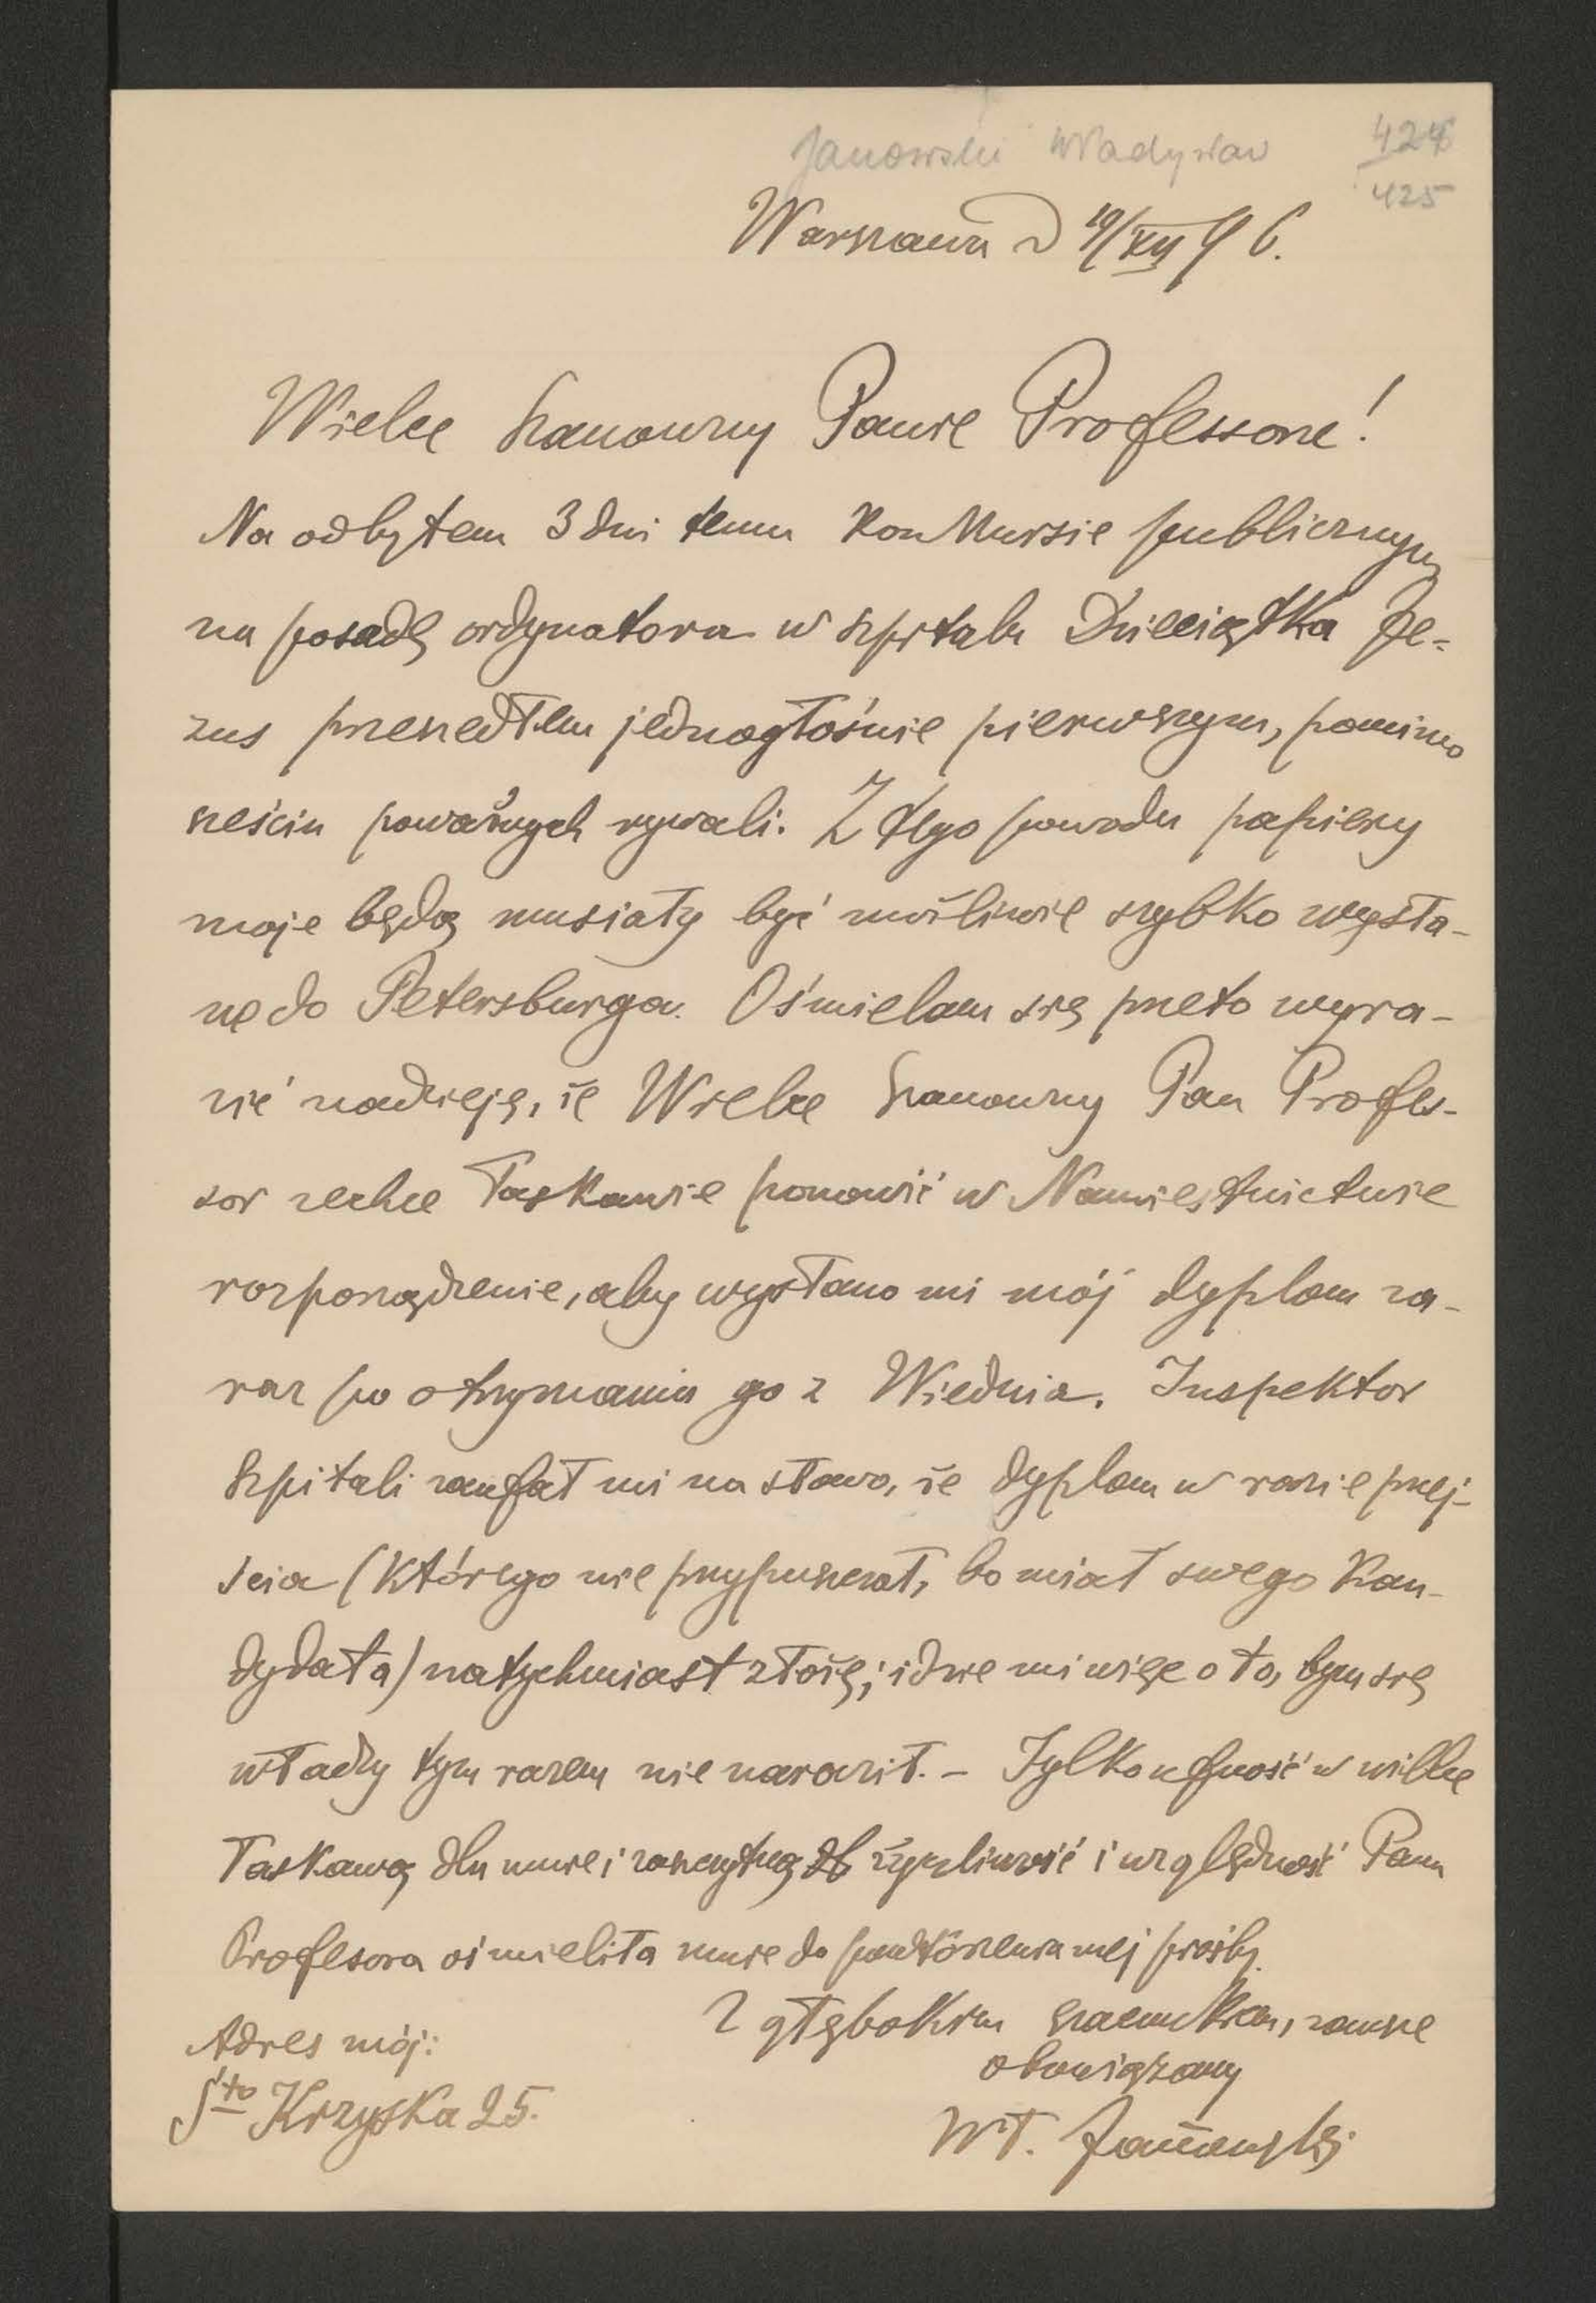 Janowski Władysław
424
425
Warszawa d 19/XII 96.
Wielce Szanowny Panie Professorze!
Na odbytem 3 dni temu konkursie publicznym
na posadę ordynatora w szpitalu Dzieciątka Je-
zus przeszedłem jednogłośnie pierwszym, pomimo
sześciu poważnych rywali. Z tego powodu papiery
moje będą musiały być możliwie szybko wysła-
ne do Petersburga. Ośmielam się przeto wyra-
zić nadzieję, że Wielce Szanowny Pan Profes-
sor zechce łaskawie ponowić w Namiestnictwie
rozporządzenie, aby wysłano mi mój dyplom za-
raz po otrzymaniu go z Wiednia. Inspektor
szpitali zaufał mi na słowo, że dyplom w razie przej-
ścia (którego nie przypuszczał, bo miał swego kan-
dydata) natychmiast złożę; idzie mi więc o to, bym się
władzy tym razem nie naraził. – Tylko ufność w wielce
łaskawą dla mnie i zaszczytną życzliwość i względność Pana
Profesora ośmieliła mnie do powtórzenia mej prośby.
Z głębokim szacunkiem, zawsze
obowiązany
Wł. Janowski
Adres mój:
Sto Krzyska 25.